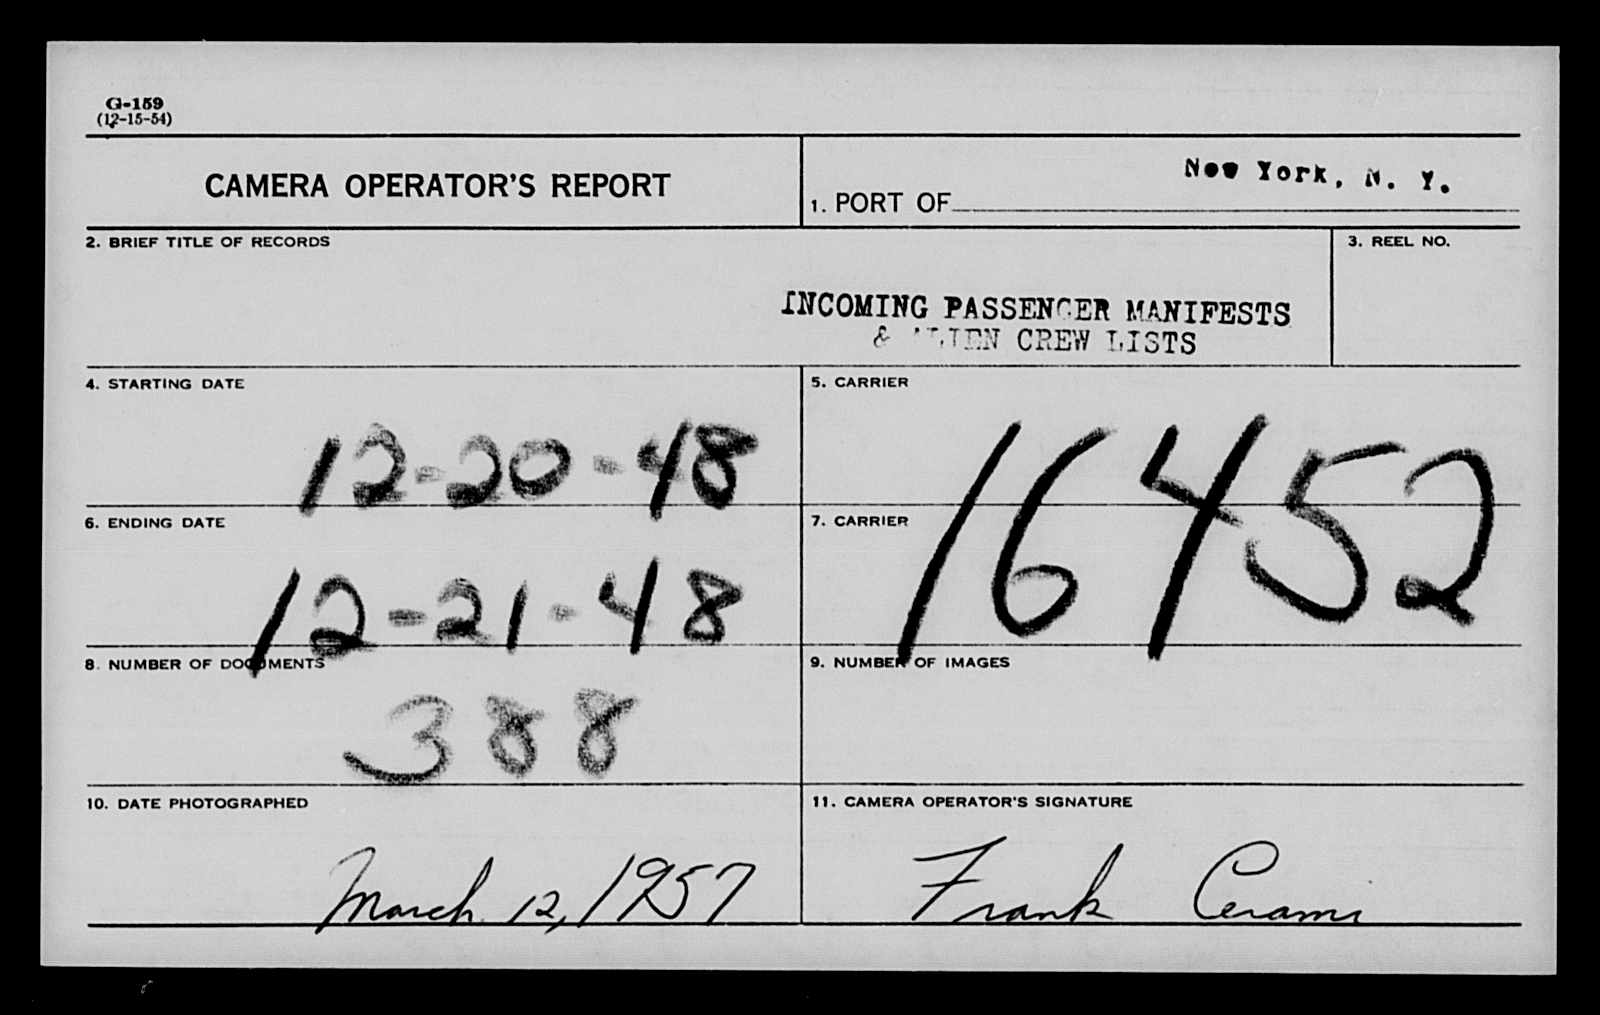 G-159
(12-15-54)
CAMERA OPERATOR'S REPORT
1. PORT OF New York, N. Y.
2. BRIEF TITLE OF RECORDS
3. REEL NO.
INCOMING PASSENGER MANIFESTS
& ALIEN CREW LISTS
4. STARTING DATE
12-20-48
5. CARRIER
16452
6. ENDING DATE
12-21-48
7. CARRIER
8. NUMBER OF DOCUMENTS
388
9. NUMBER OF IMAGES
10. DATE PHOTOGRAPHED
March 12, 1957
11. CAMERA OPERATOR'S SIGNATURE
Frank Cerami